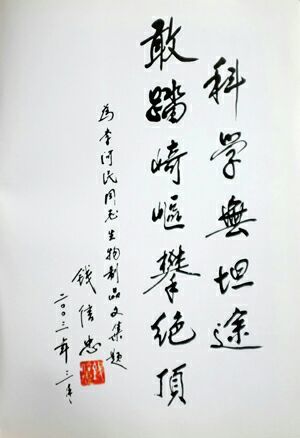 科学無坦途
敢踏崎嶇攀绝顶
為李河民同志生物制品文集題
钱信忠
二〇〇三年三月